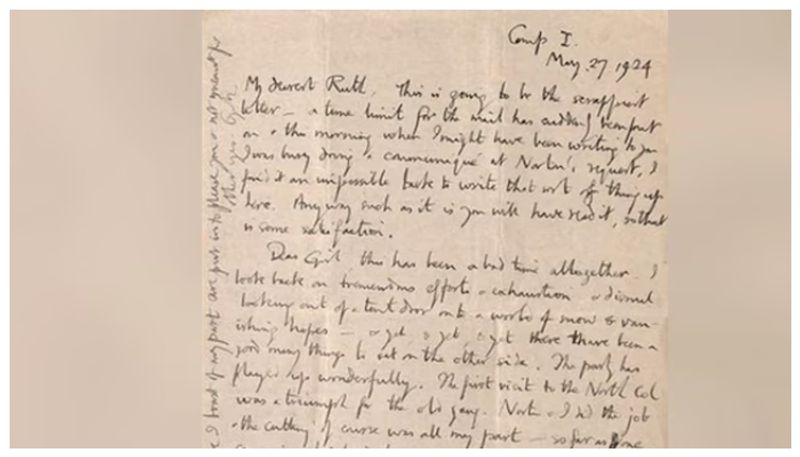 Camp I.
May 27 1924
My dearest Ruth, This is going to be the scrappiest
letter – a time limit for the mail has suddenly been put
on & this morning when I might have been writing to you
I was busy doing a communiqué at Norton's request, I
find it an impossible task to write that sort of thing up
here. Anyway such as it is you will have read it, so that
is some satisfaction.
Dear Girl, this has been a bad time altogether. I
look back on tremendous efforts & exhaustion & dismal
looking out of a tent door onto a world of snow & van-
ishing hopes – & yet, & yet, & yet there have been a
good many things to set on the other side. The party has
played up wonderfully. The first visit to the North Col
was a triumph for the old gang. Norton & I did the job
& the cutting of course was all my part – so far as one
I tread of my part are put in to please you & not meant for
other eyes